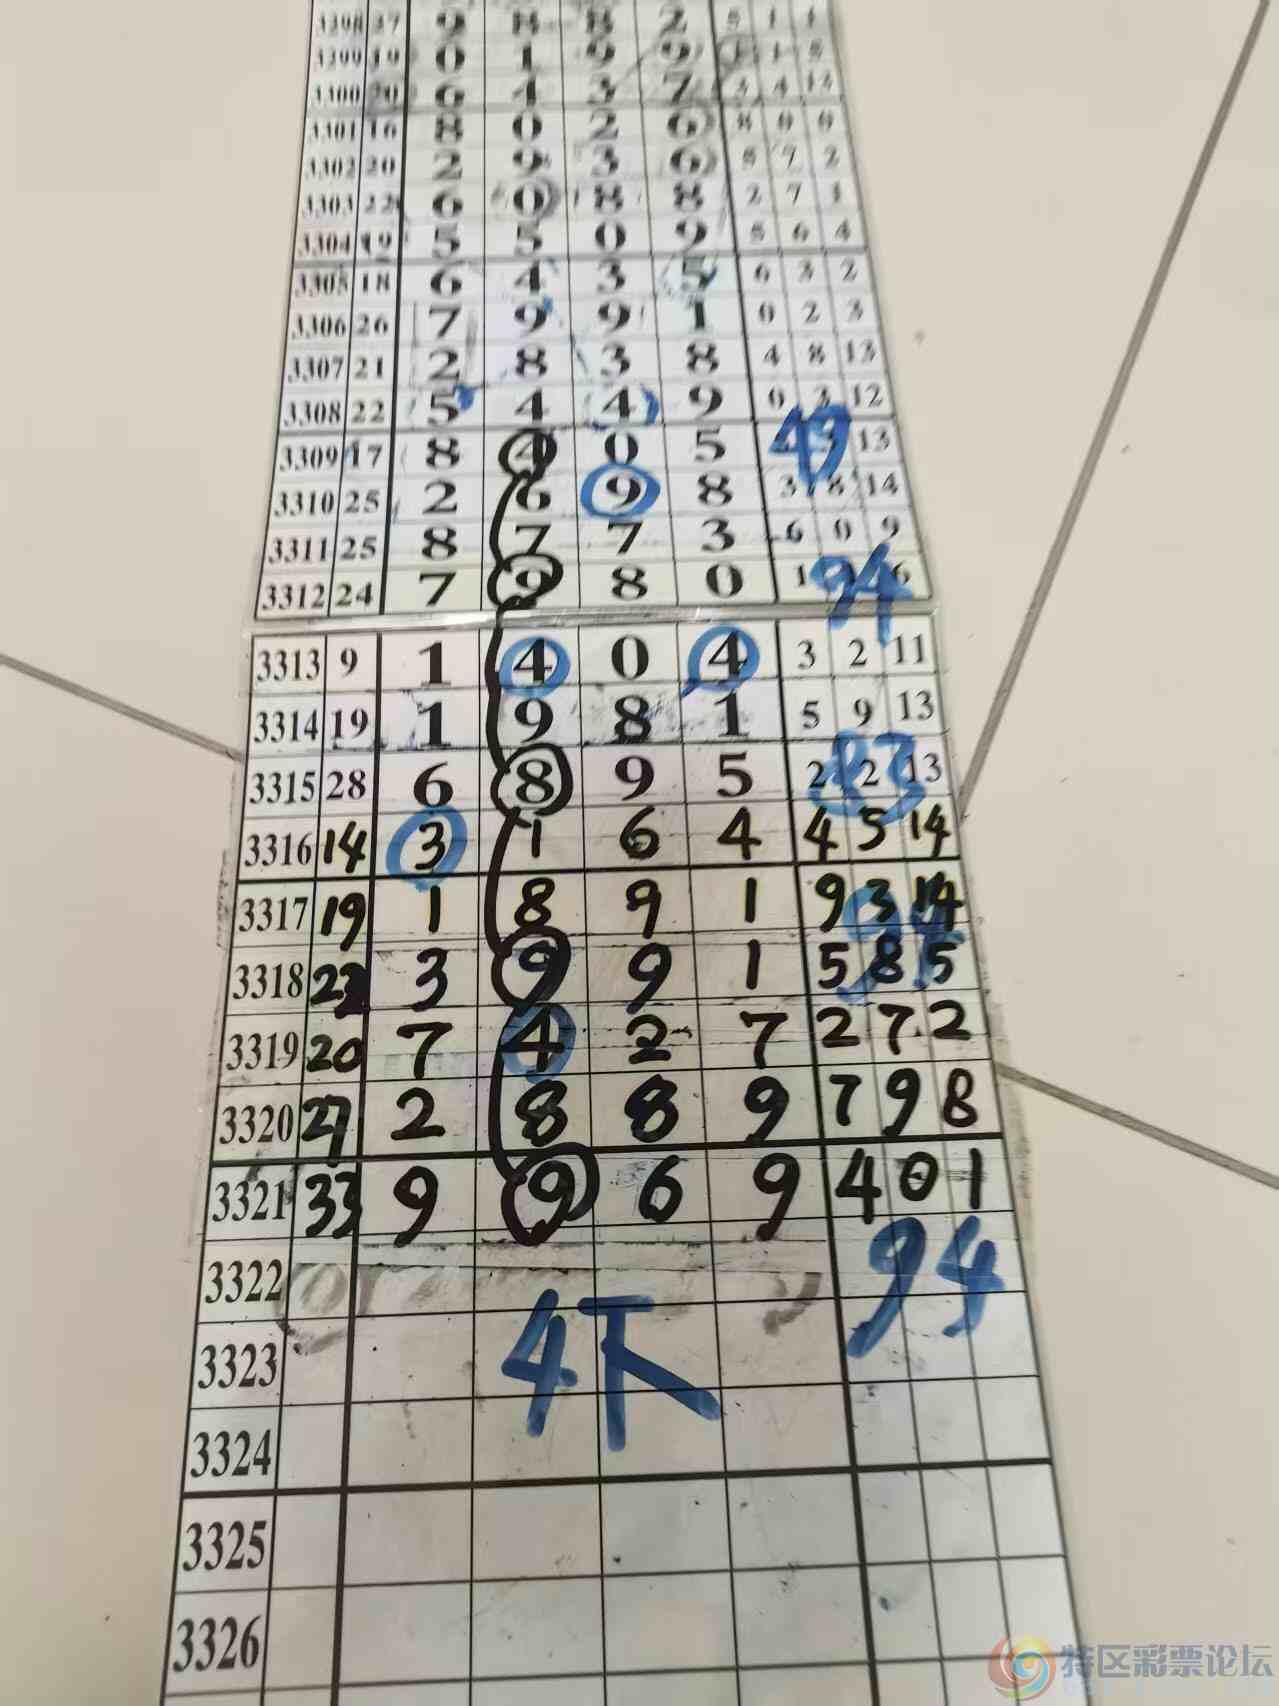 3298 27 9 8 8 2 5 1 1
3299 19 0 1 9 9 1
3300 20 6 4 3 7 3 4 13
3301 16 8 0 2 6 8 0 0
3302 20 2 9 3 6 8 7 2
3303 22 6 0 8 8 2 7 1
3304 19 5 5 0 9 5 6 4
3305 18 6 4 3 5 6 3 2
3306 26 7 9 9 1 0 2 3
3307 21 2 8 3 8 4 8 13
3308 22 5 4 4 9 0 3 12
3309 17 8 4 0 5 13
49
3310 25 2 6 9 8 3 8 14
3311 25 8 7 7 3 6 0 9
3312 24 7 9 8 0 1 6
94
3313 9 1 4 0 4 3 2 11
3314 19 1 9 8 1 5 9 13
3315 28 6 8 9 5 2 2 13
83
3316 14 3 1 6 4 4 5 14
3317 19 1 8 9 1 9 3 14
3318 22 3 9 9 1 5 8 5
3319 20 7 4 2 7 2 7 2
3320 27 2 8 8 9 7 9 8
3321 33 9 9 6 9 4 0 1
3322 94
3323 4下
3324
3325
3326
特区彩票论坛